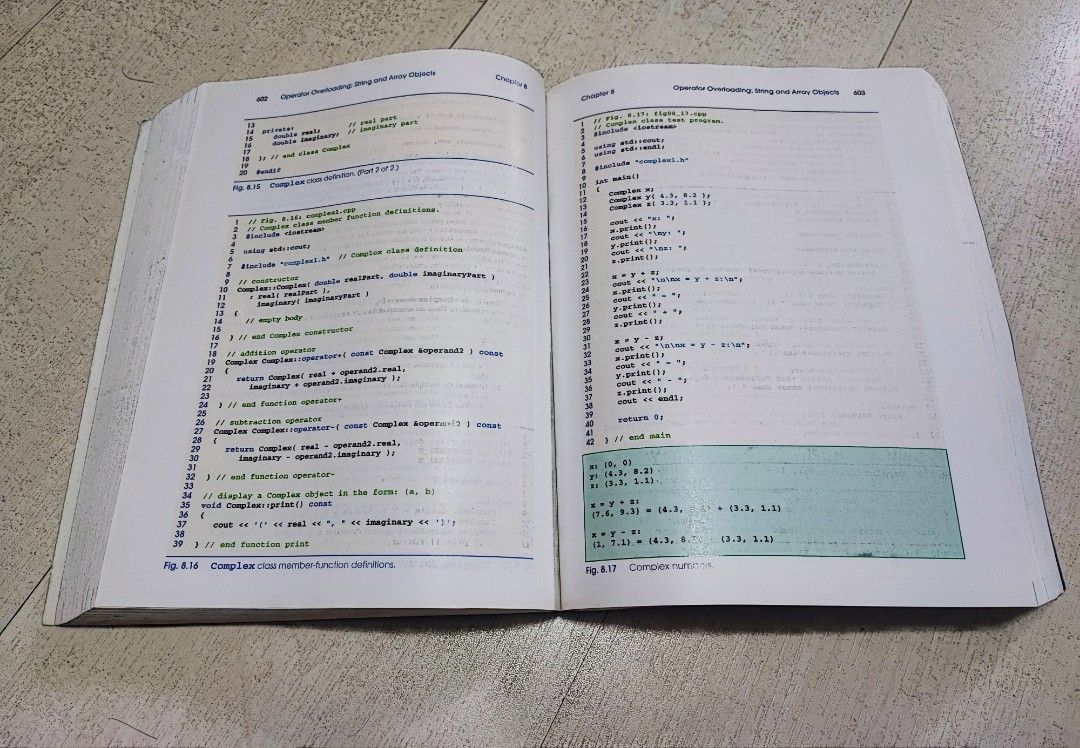 602 Operator Overloading; String and Array Objects Chapter 8
13
14 private:
15 double real; // real part
16 double imaginary; // imaginary part
17
18 }; // end class Complex
19
20 #endif
Fig. 8.15 Complex class definition. (Part 2 of 2.)
1 // Fig. 8.16: complex1.cpp
2 // Complex class member function definitions.
3 #include <iostream>
4
5 using std::cout;
6
7 #include "complex1.h" // Complex class definition
8
9 // constructor
10 Complex::Complex( double realPart, double imaginaryPart )
11 : real( realPart ),
12 imaginary( imaginaryPart )
13 {
14 // empty body
15
16 } // end Complex constructor
17
18 // addition operator
19 Complex Complex::operator+( const Complex &operand2 ) const
20 {
21 return Complex( real + operand2.real,
22 imaginary + operand2.imaginary );
23
24 } // end function operator+
25
26 // subtraction operator
27 Complex Complex::operator-( const Complex &operand2 ) const
28 {
29 return Complex( real - operand2.real,
30 imaginary - operand2.imaginary );
31
32 } // end function operator-
33
34 // display a Complex object in the form: (a, b)
35 void Complex::print() const
36 {
37 cout << '(' << real << ", " << imaginary << ')';
38
39 } // end function print
Fig. 8.16 Complex class member-function definitions.
Chapter 8 Operator Overloading; String and Array Objects 603
1 // Fig. 8.17: fig08_17.cpp
2 // Complex class test program.
3 #include <iostream>
4
5 using std::cout;
6 using std::endl;
7
8 #include "complex1.h"
9
10 int main()
11 {
12 Complex x;
13 Complex y( 4.3, 8.2 );
14 Complex z( 3.3, 1.1 );
15
16 cout << "x: ";
17 x.print();
18 cout << "\ny: ";
19 y.print();
20 cout << "\nz: ";
21 z.print();
22
23 x = y + z;
24 cout << "\n\nx = y + z:\n";
25 x.print();
26 cout << " = ";
27 y.print();
28 cout << " + ";
29 z.print();
30
31 x = y - z;
32 cout << "\n\nx = y - z:\n";
33 x.print();
34 cout << " = ";
35 y.print();
36 cout << " - ";
37 z.print();
38 cout << endl;
39
40 return 0;
41
42 } // end main
x: (0, 0)
y: (4.3, 8.2)
z: (3.3, 1.1)
x = y + z:
(7.6, 9.3) = (4.3, + (3.3, 1.1)
x = y - z:
(1, 7.1) = (4.3, (3.3, 1.1)
Fig. 8.17 Complex numbers.